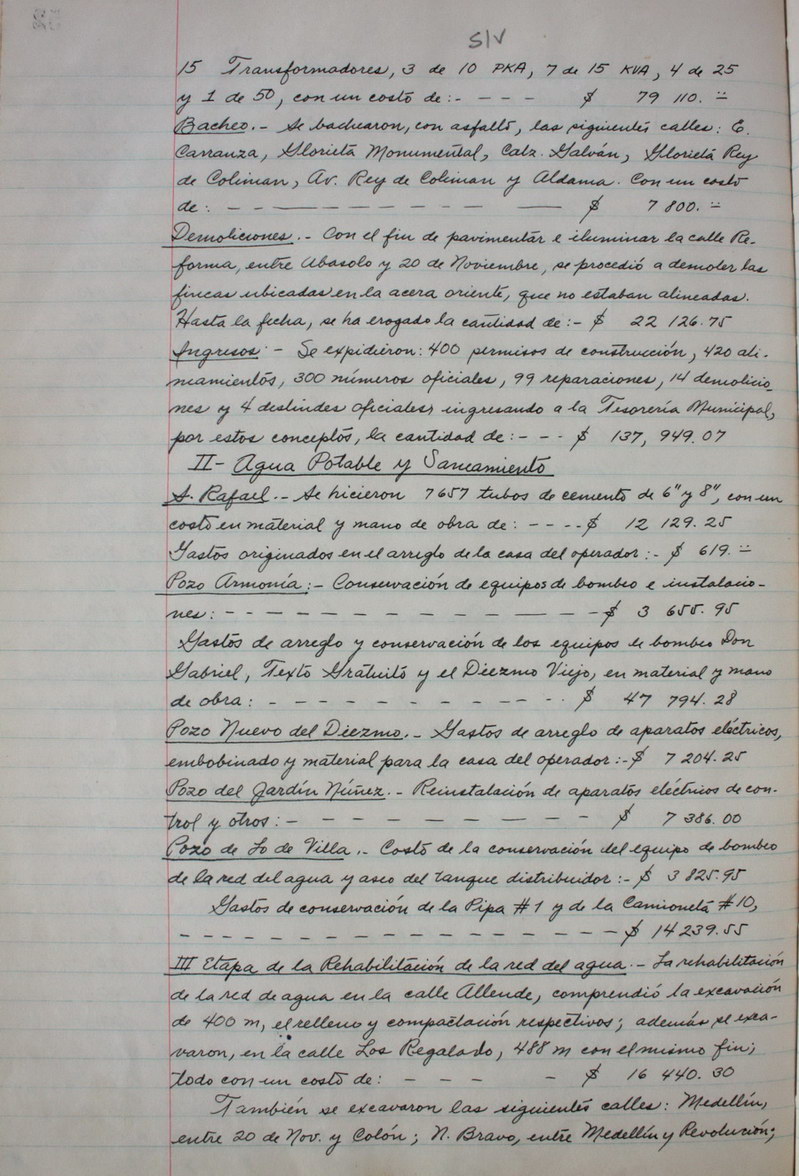 S/V
15 Transformadores, 3 de 10 PKA, 7 de 15 KVA, 4 de 25
y 1 de 50, con un costo de:- - - - $ 79 110. =
Bacheo.- Se bachearon, con asfalto, las siguientes calles: E.
Carranza, Glorieta Monumental, Calz. Galván, Glorieta Rey
de Coliman, Av. Rey de Coliman y Aldama. Con un costo
de:. - - - - - - - - - - - $ 7 800. =
Demoliciones.- Con el fin de pavimentar e iluminar la calle Re-
forma, entre Abasolo y 20 de Noviembre, se procedió a demoler las
fincas ubicadas en la acera oriente, que no estaban alineadas.
Hasta la fecha, se ha erogado la cantidad de:- $ 22 126.75
Ingresos:- Se expidieron: 400 permisos de construcción, 420 ali-
niamientos, 300 números oficiales, 99 reparaciones, 14 demolicio-
nes y 4 deslindes oficiales; ingresando a la Tesorería Municipal,
por estos conceptos, la cantidad de:- - - $ 137, 949.07
II- Agua Potable y Saneamiento
S. Rafael.- Se hicieron 7657 tubos de cemento de 6" y 8", con un
costo en material y mano de obra de: - - - - $ 12 129.25
Gastos originados en el arreglo de la casa del operador:- $ 619. =
Pozo Armonía:- Conservación de equipos de bombeo e instalacio-
nes: - - - - - - - - - - - - - - - $ 3 655.95
Gastos de arreglo y conservación de los equipos de bombeo Don
Gabriel, Texto Gratuito y el Diezmo Viejo, en material y mano
de obra: - - - - - - - - - - - $ 47 794.28
Pozo Nuevo del Diezmo.- Gastos de arreglo de aparatos eléctricos,
embobinado y material para la casa del operador:- $ 7 204.25
Pozo del Jardín Núñez.- Reinstalación de aparatos eléctricos de con-
trol y otros:- - - - - - - - - - $ 7 386.00
Pozo de Lo de Villa.- Costo de la conservación del equipo de bombeo
de la red del agua y aseo del tanque distribuidor:- $ 3 825.95
Gastos de conservación de la Pipa #1 y de la Camioneta #10,
- - - - - - - - - - - - - - - - - $ 14 239.55
III Etapa de la Rehabilitación de la red del agua.- La rehabilitación
de la red de agua en la calle Allende, comprendió la excavación
de 400 m, el relleno y compactación respectivos; además se exca-
varon, en la calle Los Regalado, 488 m con el mismo fin;
todo con un costo de: - - - - $ 16 440.30
También se excavaron las siguientes calles: Medellín,
entre 20 de Nov. y Colón; N. Bravo, entre Medellín y Revolución;